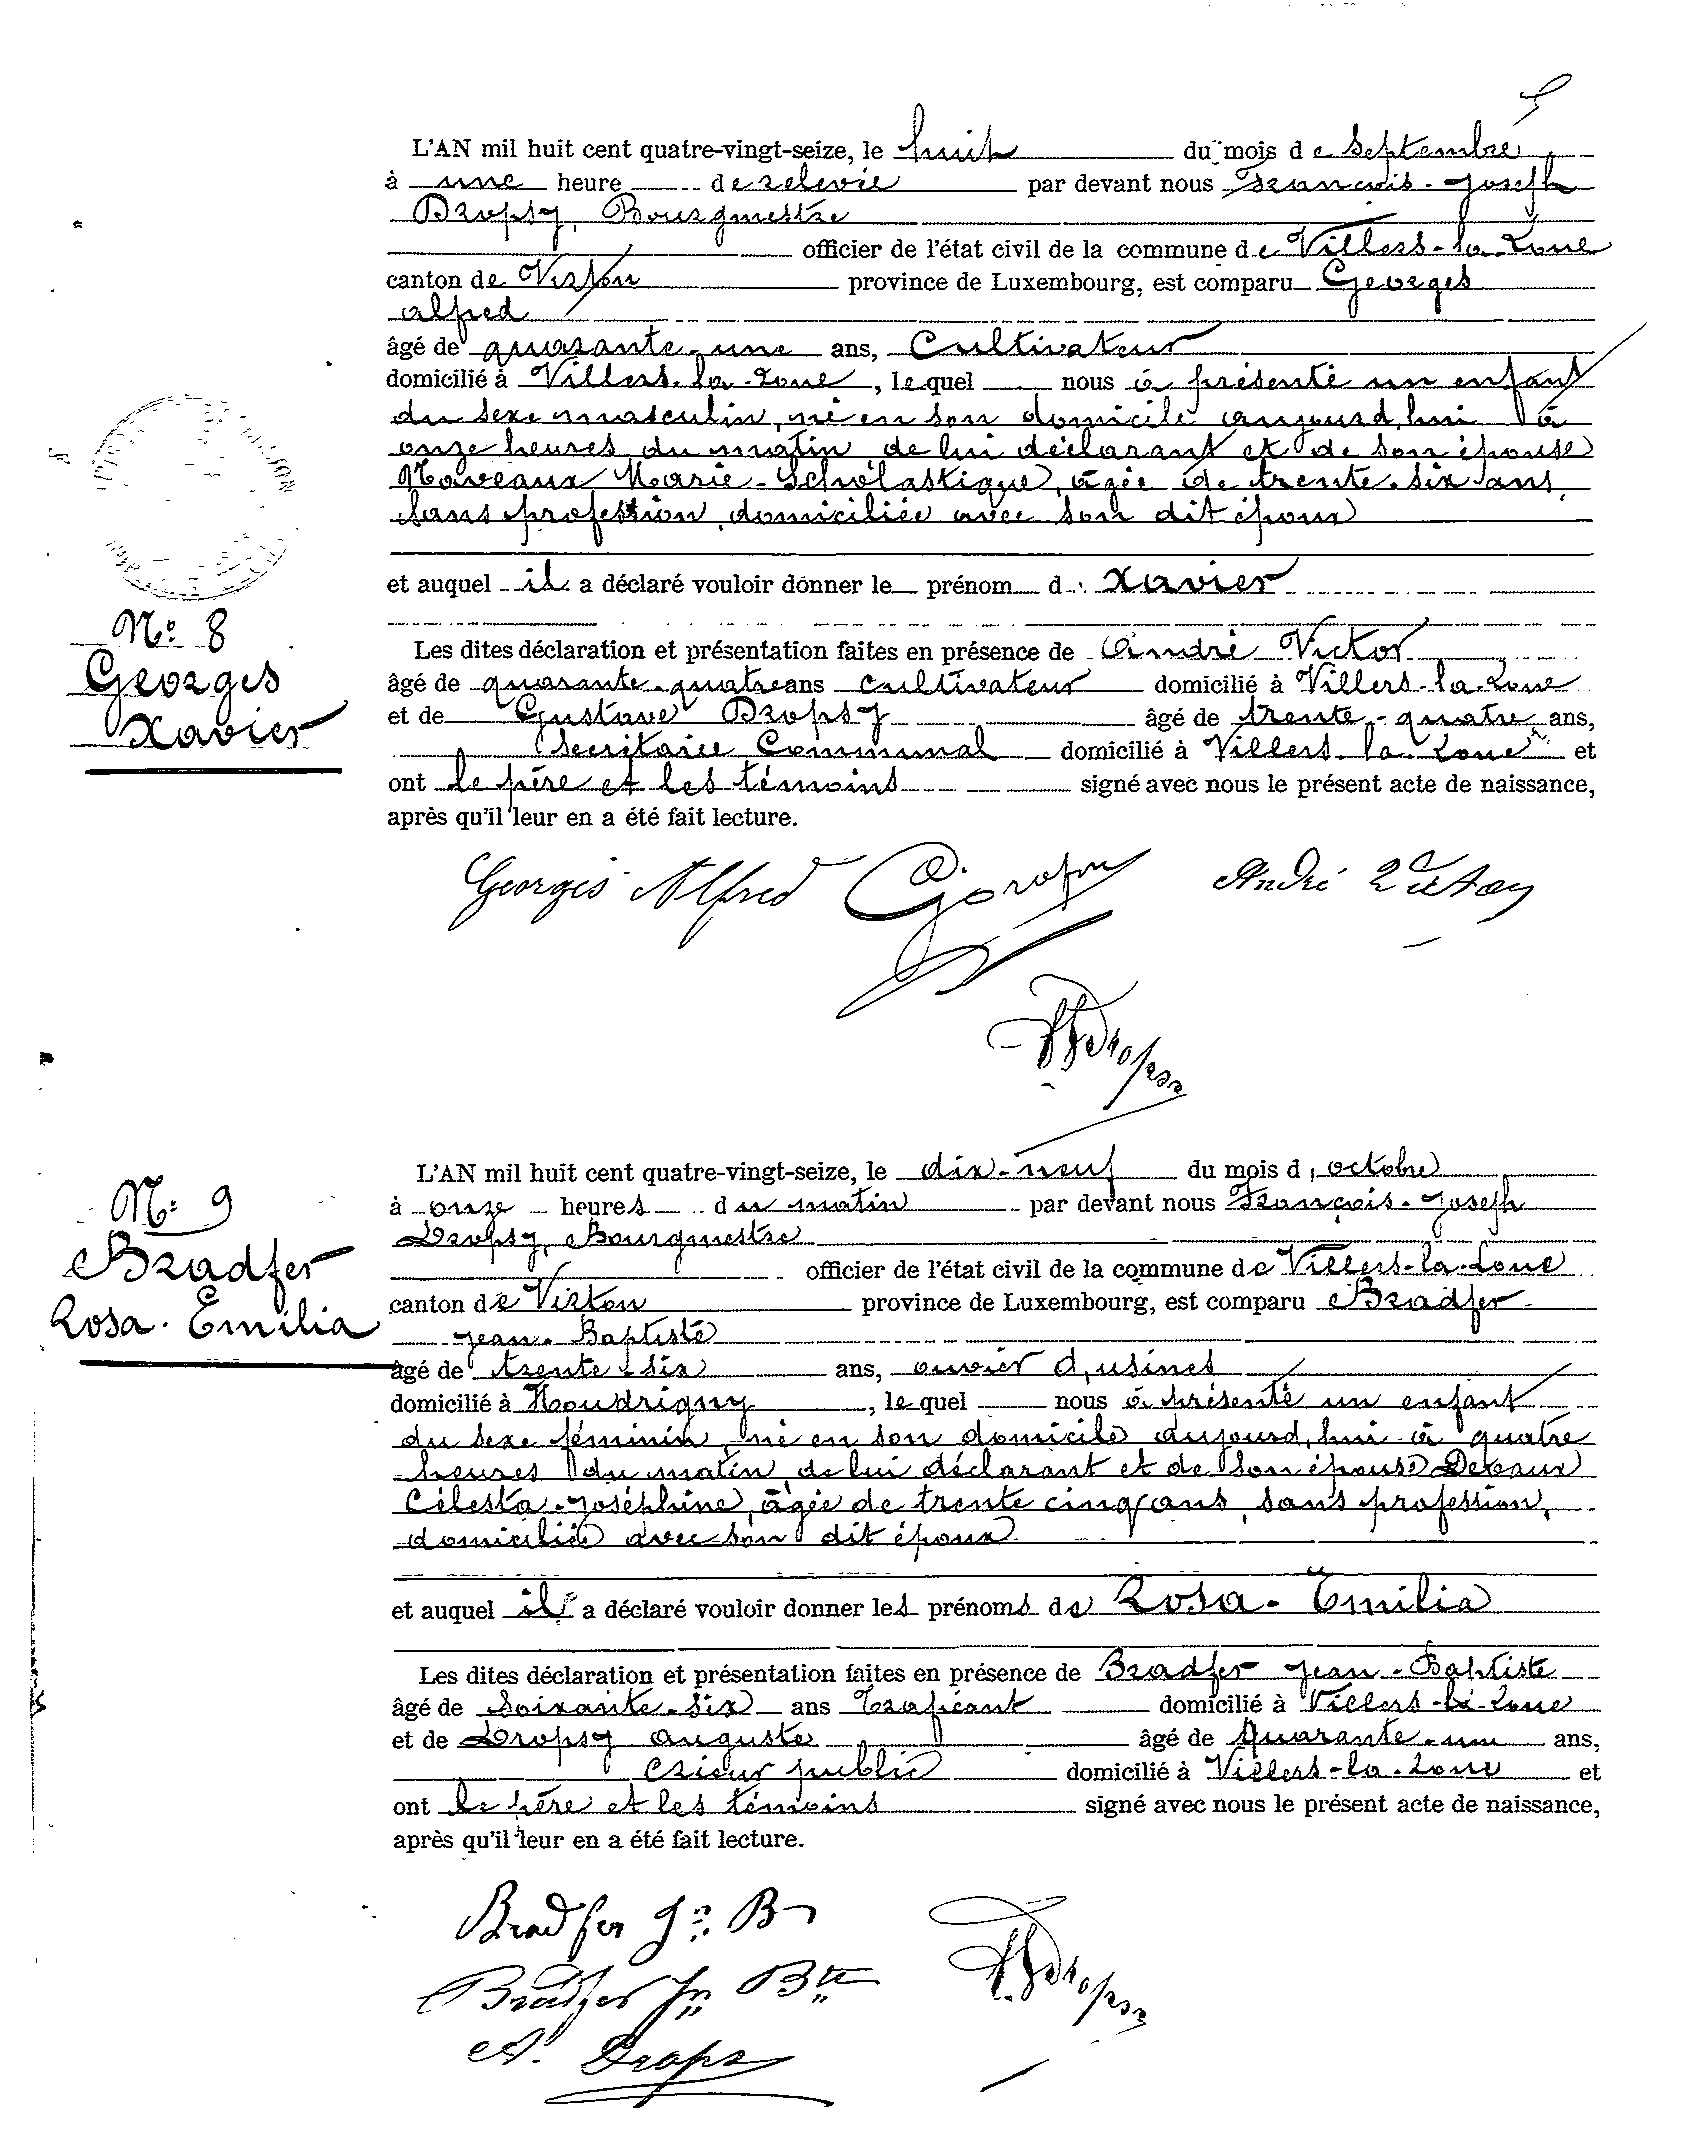 L'AN mil huit cent quatre-vingt-seize, le huit du mois de Septembre
à une heure de relevée par devant nous François-Joseph
Dropsy, Bourgmestre
officier de l'état civil de la commune de Villers-la-Loue
canton de Virton province de Luxembourg, est comparu Georges
alfred
âgé de quarante-une ans, Cultivateur
domicilié à Villers-la-Loue, lequel nous a présenté un enfant
du sexe masculin, né en son domicile aujourd'hui à
onze heures du matin, de lui déclarant et de son épouse
Marie-Scholastique, âgée de trente-six ans,
sans profession, domiciliée avec son dit époux
et auquel il a déclaré vouloir donner le prénom d Xavier
N° 8
Georges
Xavier
Les dites déclaration et présentation faites en présence de André Victor
âgé de quarante-quatre ans cultivateur domicilié à Villers-la-Loue
et de Gustave Dropsy âgé de trente-quatre ans,
Secrétaire Communal domicilié à Villers-la-Loue et
ont le père et les témoins signé avec nous le présent acte de naissance,
après qu'il leur en a été fait lecture.
Georges Alfred G. Dropsy André Victor
FJDropsy
L'AN mil huit cent quatre-vingt-seize, le dix-neuf du mois d'octobre
à onze heures du matin par devant nous François-Joseph
Dropsy, Bourgmestre
officier de l'état civil de la commune de Villers-la-Loue
canton de Virton province de Luxembourg, est comparu Bradfer
Jean-Baptiste
N° 9
Bradfer
Rosa-Emilia
âgé de trente-six ans, ouvrier d'usines
domicilié à Houdrigny, lequel nous a présenté un enfant
du sexe féminin, né en son domicile aujourd'hui à quatre
heures du matin, de lui déclarant et de son épouse Devaux
Célesta-Joséphine, âgée de trente cinq ans, sans profession,
domiciliée avec son dit époux
et auquel il a déclaré vouloir donner les prénoms de Rosa-Emilia
Les dites déclaration et présentation faites en présence de Bradfer Jean-Baptiste
âgé de soixante-six ans Traficant domicilié à Villers-la-Loue
et de Dropsy auguste âgé de quarante-un ans,
crieur public domicilié à Villers-la-Loue et
ont le père et les témoins signé avec nous le présent acte de naissance,
après qu'il leur en a été fait lecture.
Bradfer Jn B
Bradfer Jn Bte
FJDropsy
A. Dropsy